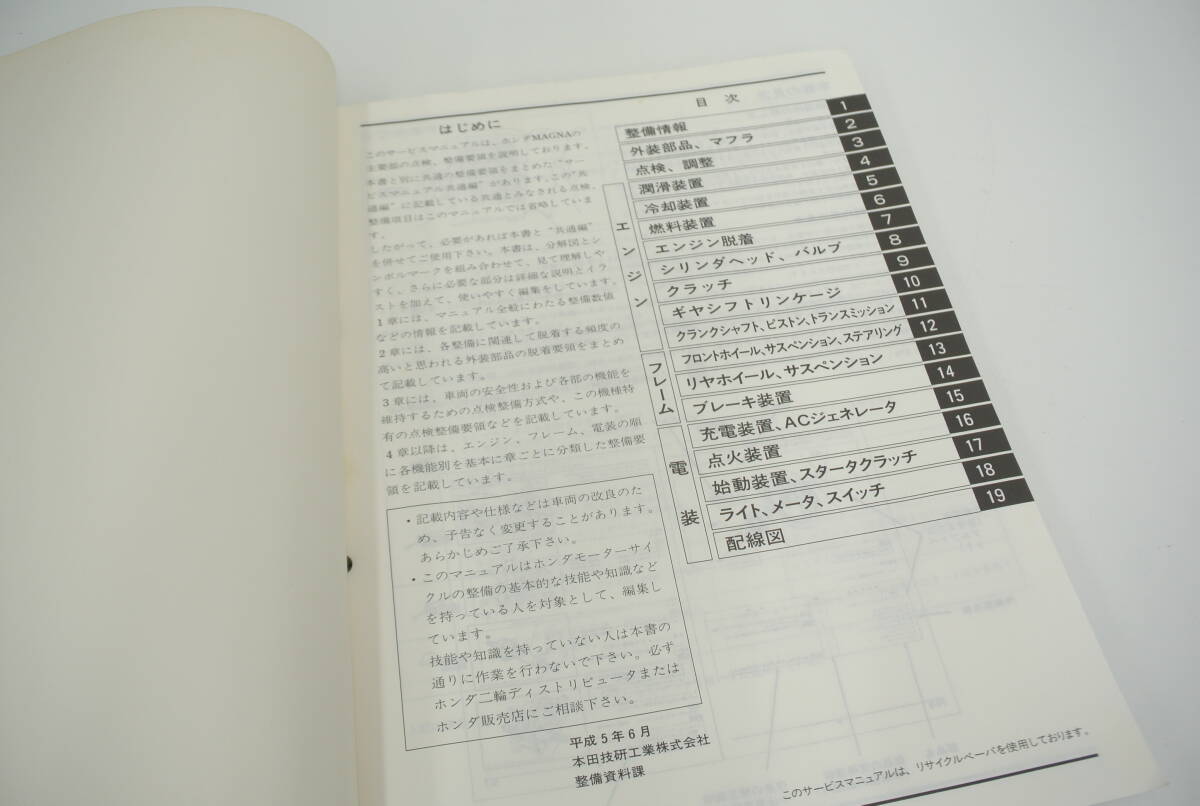 はじめに
このサービスマニュアルは、ホンダMAGNAの
主要部の点検、整備要領を説明しております。
本書と別に共通の整備要領をまとめた“サー
ビスマニュアル共通編”があります。この“共
通編”に記載している共通とみなされる点検、
整備項目はこのマニュアルでは省略していま
す。
したがって、必要があれば本書と“共通編”
を併せてご使用下さい。本書は、分解図とシ
ンボルマークを組み合わせて、見て理解しや
すく、さらに必要な部分は詳細な説明とイラ
ストを加えて、使いやすく編集をしています。
1章には、マニュアル全般にわたる整備数値
などの情報を記載しています。
2章には、各整備に関連して脱着する頻度の
高いと思われる外装部品の脱着要領をまとめ
て記載しています。
3章には、車両の安全性および各部の機能を
維持するための点検整備方式や、この機種特
有の点検整備要領などを記載しています。
4章以降は、エンジン、フレーム、電装の順
に各機能別を基本に章ごとに分類した整備要
領を記載しています。
・記載内容や仕様などは車両の改良のた
め、予告なく変更することがあります。
あらかじめご了承下さい。
・このマニュアルはホンダモーターサイ
クルの整備の基本的な技能や知識など
を持っている人を対象として、編集し
ています。
技能や知識を持っていない人は本書の
通りに作業を行わないで下さい。必ず
ホンダ二輪ディストリビュータまたは
ホンダ販売店にご相談下さい。
平成5年6月
本田技研工業株式会社
整備資料課
目次
整備情報 1
外装部品、マフラ 2
点検、調整 3
エンジン
潤滑装置 4
冷却装置 5
燃料装置 6
エンジン脱着 7
シリンダヘッド、バルブ 8
クラッチ 9
ギヤシフトリンケージ 10
クランクシャフト、ピストン、トランスミッション 11
フレーム
フロントホイール、サスペンション、ステアリング 12
リヤホイール、サスペンション 13
ブレーキ装置 14
電装
充電装置、ACジェネレータ 15
点火装置 16
始動装置、スタータクラッチ 17
ライト、メータ、スイッチ 18
配線図 19
このサービスマニュアルは、リサイクルペーパを使用しております。